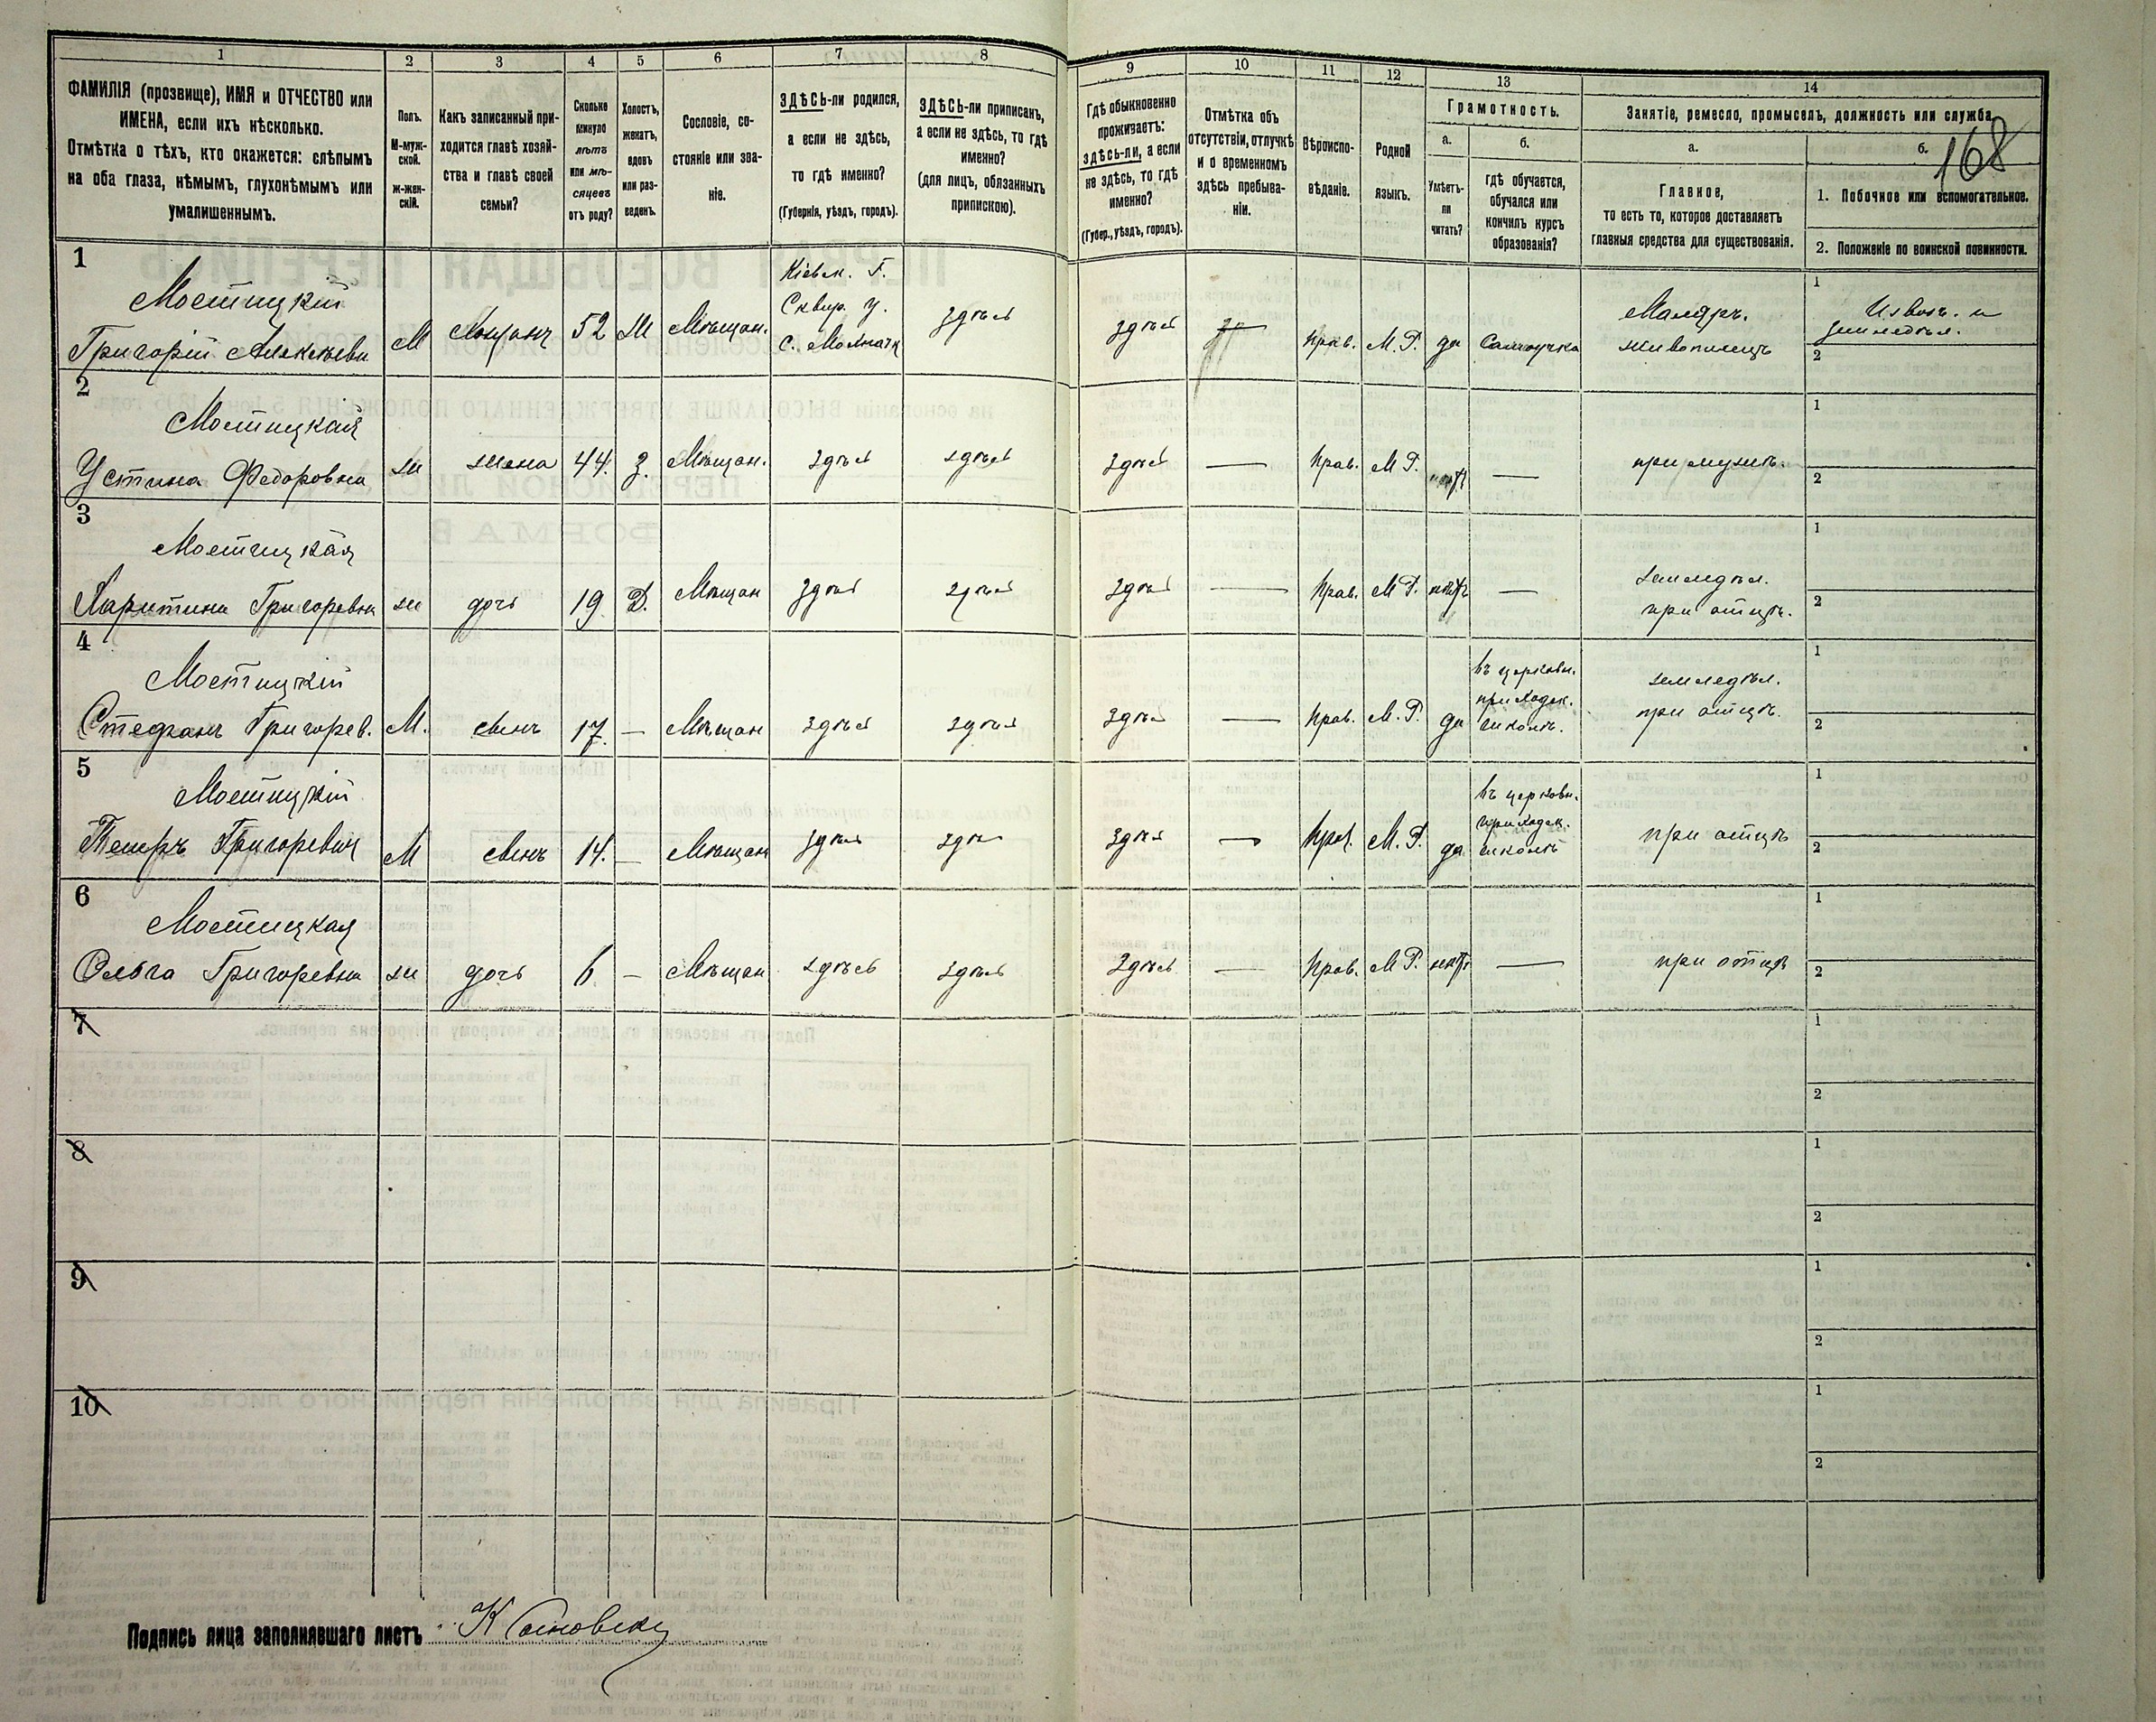 1
2
3
4
5
6
7
8
9
10
11
12
13
14
ФАМИЛІЯ (прозвище), ИМЯ и ОТЧЕСТВО или
ИМЕНА, если ихъ нѣсколько.
Отмѣтка о тѣхъ, кто окажется: слѣпымъ
на оба глаза, нѣмымъ, глухонѣмымъ или
умалишеннымъ.
Полъ.
М-муж-
ской.
ж-жен-
скій.
Какъ записанный при-
ходится главѣ хозяй-
ства и главѣ своей
семьи?
Сколько
минуло
лѣтъ
или мѣ-
сяцевъ
отъ роду?
Холостъ,
женатъ,
вдовъ
или раз-
веденъ.
Сословіе, со-
стояніе или зва-
ніе.
ЗДѢСЬ-ли родился,
а если не здѣсь,
то гдѣ именно?
(Губернія, уѣздъ, городъ).
ЗДѢСЬ-ли приписанъ,
а если не здѣсь, то гдѣ
именно?
(для лицъ, обязанныхъ
припискою).
Гдѣ обыкновенно
проживаетъ:
здѣсь-ли, а если
не здѣсь, то гдѣ
именно?
(Губер., уѣздъ, городъ).
Отмѣтка объ
отсутствіи, отлучкѣ
и о временномъ
здѣсь пребыва-
ніи.
Вѣроиспо-
вѣданіе.
Родной
языкъ.
Грамотность.
а.
Умѣетъ-
ли
читать?
б.
гдѣ обучается,
обучался или
кончилъ курсъ
образованія?
Занятіе, ремесло, промыселъ, должность или служба
168
а.
Главное,
то есть то, которое доставляетъ
главныя средства для существованія.
б.
1. Побочное или вспомогательное.
2. Положеніе по воинской повинности.
1
Мостицкій
Григорій Алексѣеви
М
52
Мѣщан.
Кіевск. Г.
Сквир. у.
здѣсь
здѣсь
Прав.
М. Р.
да
Самоучка
Маляръ.
живописецъ
1
Извозъ. и
земледѣл.
2
2
Мостицкая
Устина Федоровна
ж
жена
44.
З.
Мѣщан.
здѣсь
здѣсь
здѣсь
—
Прав.
М Р.
нѣтъ
—
при мужѣ.
1
2
3
Мостицкая
Харитина Григоревна
ж
дочь
19
Д.
Мѣщан
здѣсь
здѣсь
здѣсь
—
Прав.
М Р.
нѣтъ
—
земледѣл.
при отцѣ.
1
2
4
Мостицкій
Стефанъ Григорев.
М.
сынъ
17.
—
Мѣщан
здѣсь
здѣсь
здѣсь
—
Прав.
М. Р.
да
въ церковн.
приходск.
школѣ.
земледѣл.
при отцѣ.
1
2
5
Мостицкій
Петръ Григоревич
М
сынъ
14.
—
Мѣщан
здѣсь
здѣсь
здѣсь
—
Прав.
М. Р.
да
въ церковн.
приходск.
школѣ
при отцѣ
1
2
6
Мостицкая
Ольга Григоревна
ж
дочь
6
—
Мѣщан
здѣсь
здѣсь
здѣсь
—
Прав.
М Р.
нѣтъ
—
при отцѣ
1
2
7
1
2
8
1
2
9
1
2
10
1
2
Подпись лица заполнявшаго листъ